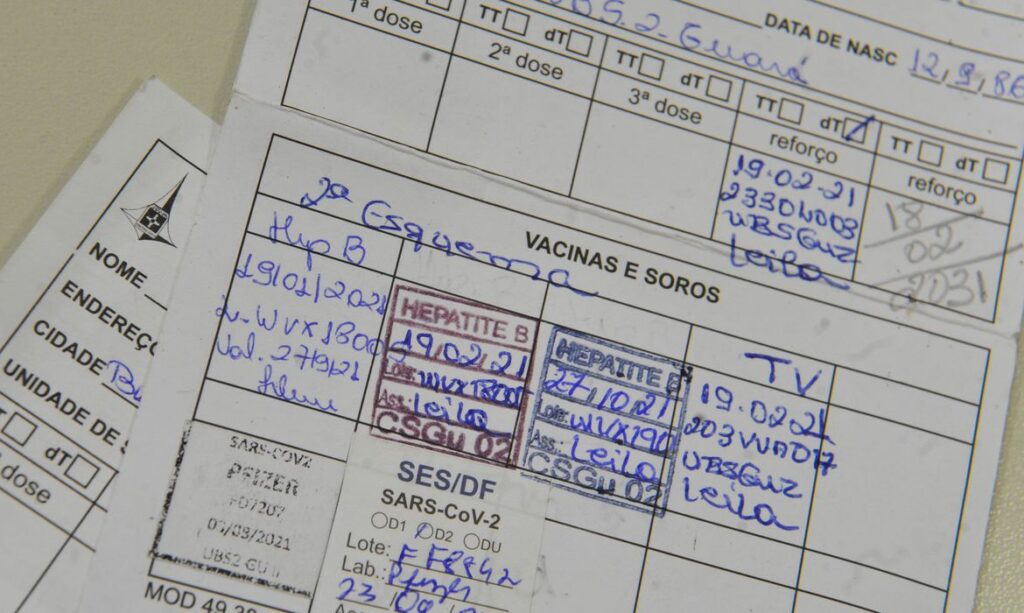 U.B.S. 2 - Guará
DATA DE NASC 12,9,86
1ª dose
TT dT
2ª dose
TT dT
3ª dose
TT dT
reforço
19-02-21
UBSGUZ
Leila
TT dT
reforço
18
02
2031
VACINAS E SOROS
2ª Esquema
Hep B
19/01/2021
Val. 27/9/21
HEPATITE B
19/02/21
Lote:
Ass.: Leila
CSGu 02
HEPATITE B
27/10/21
Lote: WVX190
Ass.: Leila
CSGu 02
TV
19-02-21
203VVA017
UBSGUZ
Leila
SARS-COV2
PFIZER
2021
SES/DF
SARS-CoV-2
D1 D2 DU
Lote:
Lab.: Pfizer
23
MOD 49
NOME
ENDEREÇO
CIDADE
UNIDADE DE
dT
dose